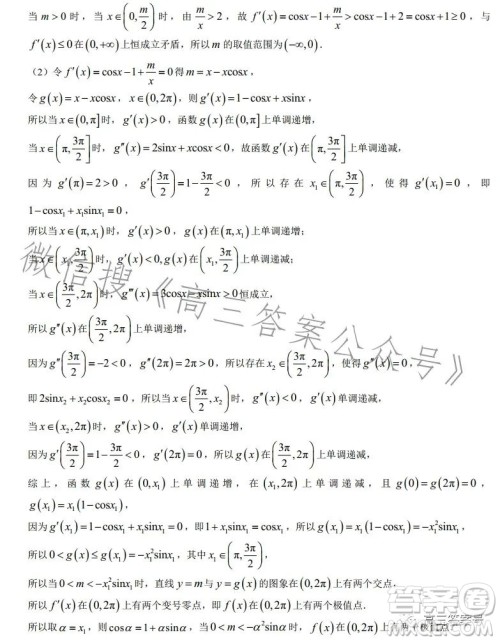 当 m > 0 时，当 x∈(0, m/2) 时，由 m/x > 2，故 f′(x) = cosx − 1 + m/x > cosx − 1 + 2 = cosx + 1 ≥ 0，与
f′(x) ≤ 0 在 (0, +∞) 上恒成立矛盾，所以 m 的取值范围为 (−∞, 0).
（2）令 f′(x) = cosx − 1 + m/x = 0 得 m = x − xcosx，
令 g(x) = x − xcosx，x∈(0, 2π)，则 g′(x) = 1 − cosx + xsinx，
所以当 x∈(0, π] 时，g′(x) > 0，函数 g(x) 在 (0, π] 上单调递增，
当 x∈(π, 3π/2] 时，g″(x) = 2sinx + xcosx < 0，故函数 g′(x) 在 (π, 3π/2] 上单调递减，
因为 g′(π) = 2 > 0，g′(3π/2) = 1 − 3π/2 < 0，所以存在 x₁∈(π, 3π/2)，使得 g′(x₁) = 0，即
1 − cosx₁ + x₁sinx₁ = 0，
所以当 x∈(π, x₁) 时，g′(x) > 0，g(x) 在 (π, x₁) 上单调递增；
当 x∈(x₁, 3π/2) 时，g′(x) < 0, g(x) 在 (x₁, 3π/2) 上单调递减；
当 x∈(3π/2, 2π) 时，g‴(x) = 3cosx − xsinx > 0 恒成立，
所以 g″(x) 在 (3π/2, 2π) 上单调递增，
因为 g″(3π/2) = −2 < 0，g″(2π) = 2π > 0，所以存在 x₂∈(3π/2, 2π)，使得 g″(x) = 0，
即 2sinx₂ + x₂cosx₂ = 0，所以当 x∈(3π/2, x₂) 时，g″(x) < 0，g′(x) 单调递减，
当 x∈(x₂, 2π) 时，g″(x) > 0，g′(x) 单调递增，
因为 g′(3π/2) = 1 − 3π/2 < 0，g′(2π) = 0，所以 g(x) 在 (3π/2, 2π) 上单调递减，
综上，函数 g(x) 在 (0, x₁) 上单调递增，在 (x₁, 2π) 上单调递减，且 g(0) = g(2π) = 0，
g(x₁) = x₁(1 − cosx₁)，
因为 g′(x₁) = 1 − cosx₁ + x₁sinx₁ = 0，即 1 + x₁sinx₁ = cosx₁，所以 g(x₁) = x₁(1 − cosx₁) = −x₁²sinx₁，
所以 0 < g(x) ≤ g(x₁) = −x₁²sinx₁，其中 x₁∈(π, 3π/2)，
所以当 0 < m < −x₁²sinx₁ 时，直线 y = m 与 y = g(x) 的图象在 (0, 2π) 上有两个交点，
所以 f′(x) 在 (0, 2π) 上有两个变号零点，即 f(x) 在 (0, 2π) 上有两个极值点.
所以取 α = x₁，则 cosα = 1 + αsinα，当 0 < m < −α²sinα 时，f(x) 在 (0, 2π) 上
微信搜《高三答案公众号》